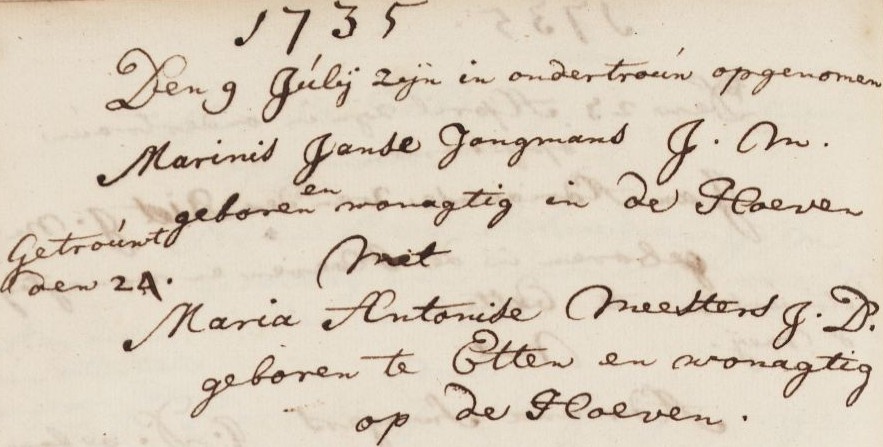 1735
Den 9 Júlij zijn in ondertroún opgenomen
Marinis Janse Jongmans J. M.
geboren en wonagtig in de Hoeven
Getroúwt
den 24.
Met
Maria Antonise Meesters J. D.
geboren te Etten en wonagtig
op de Hoeven.